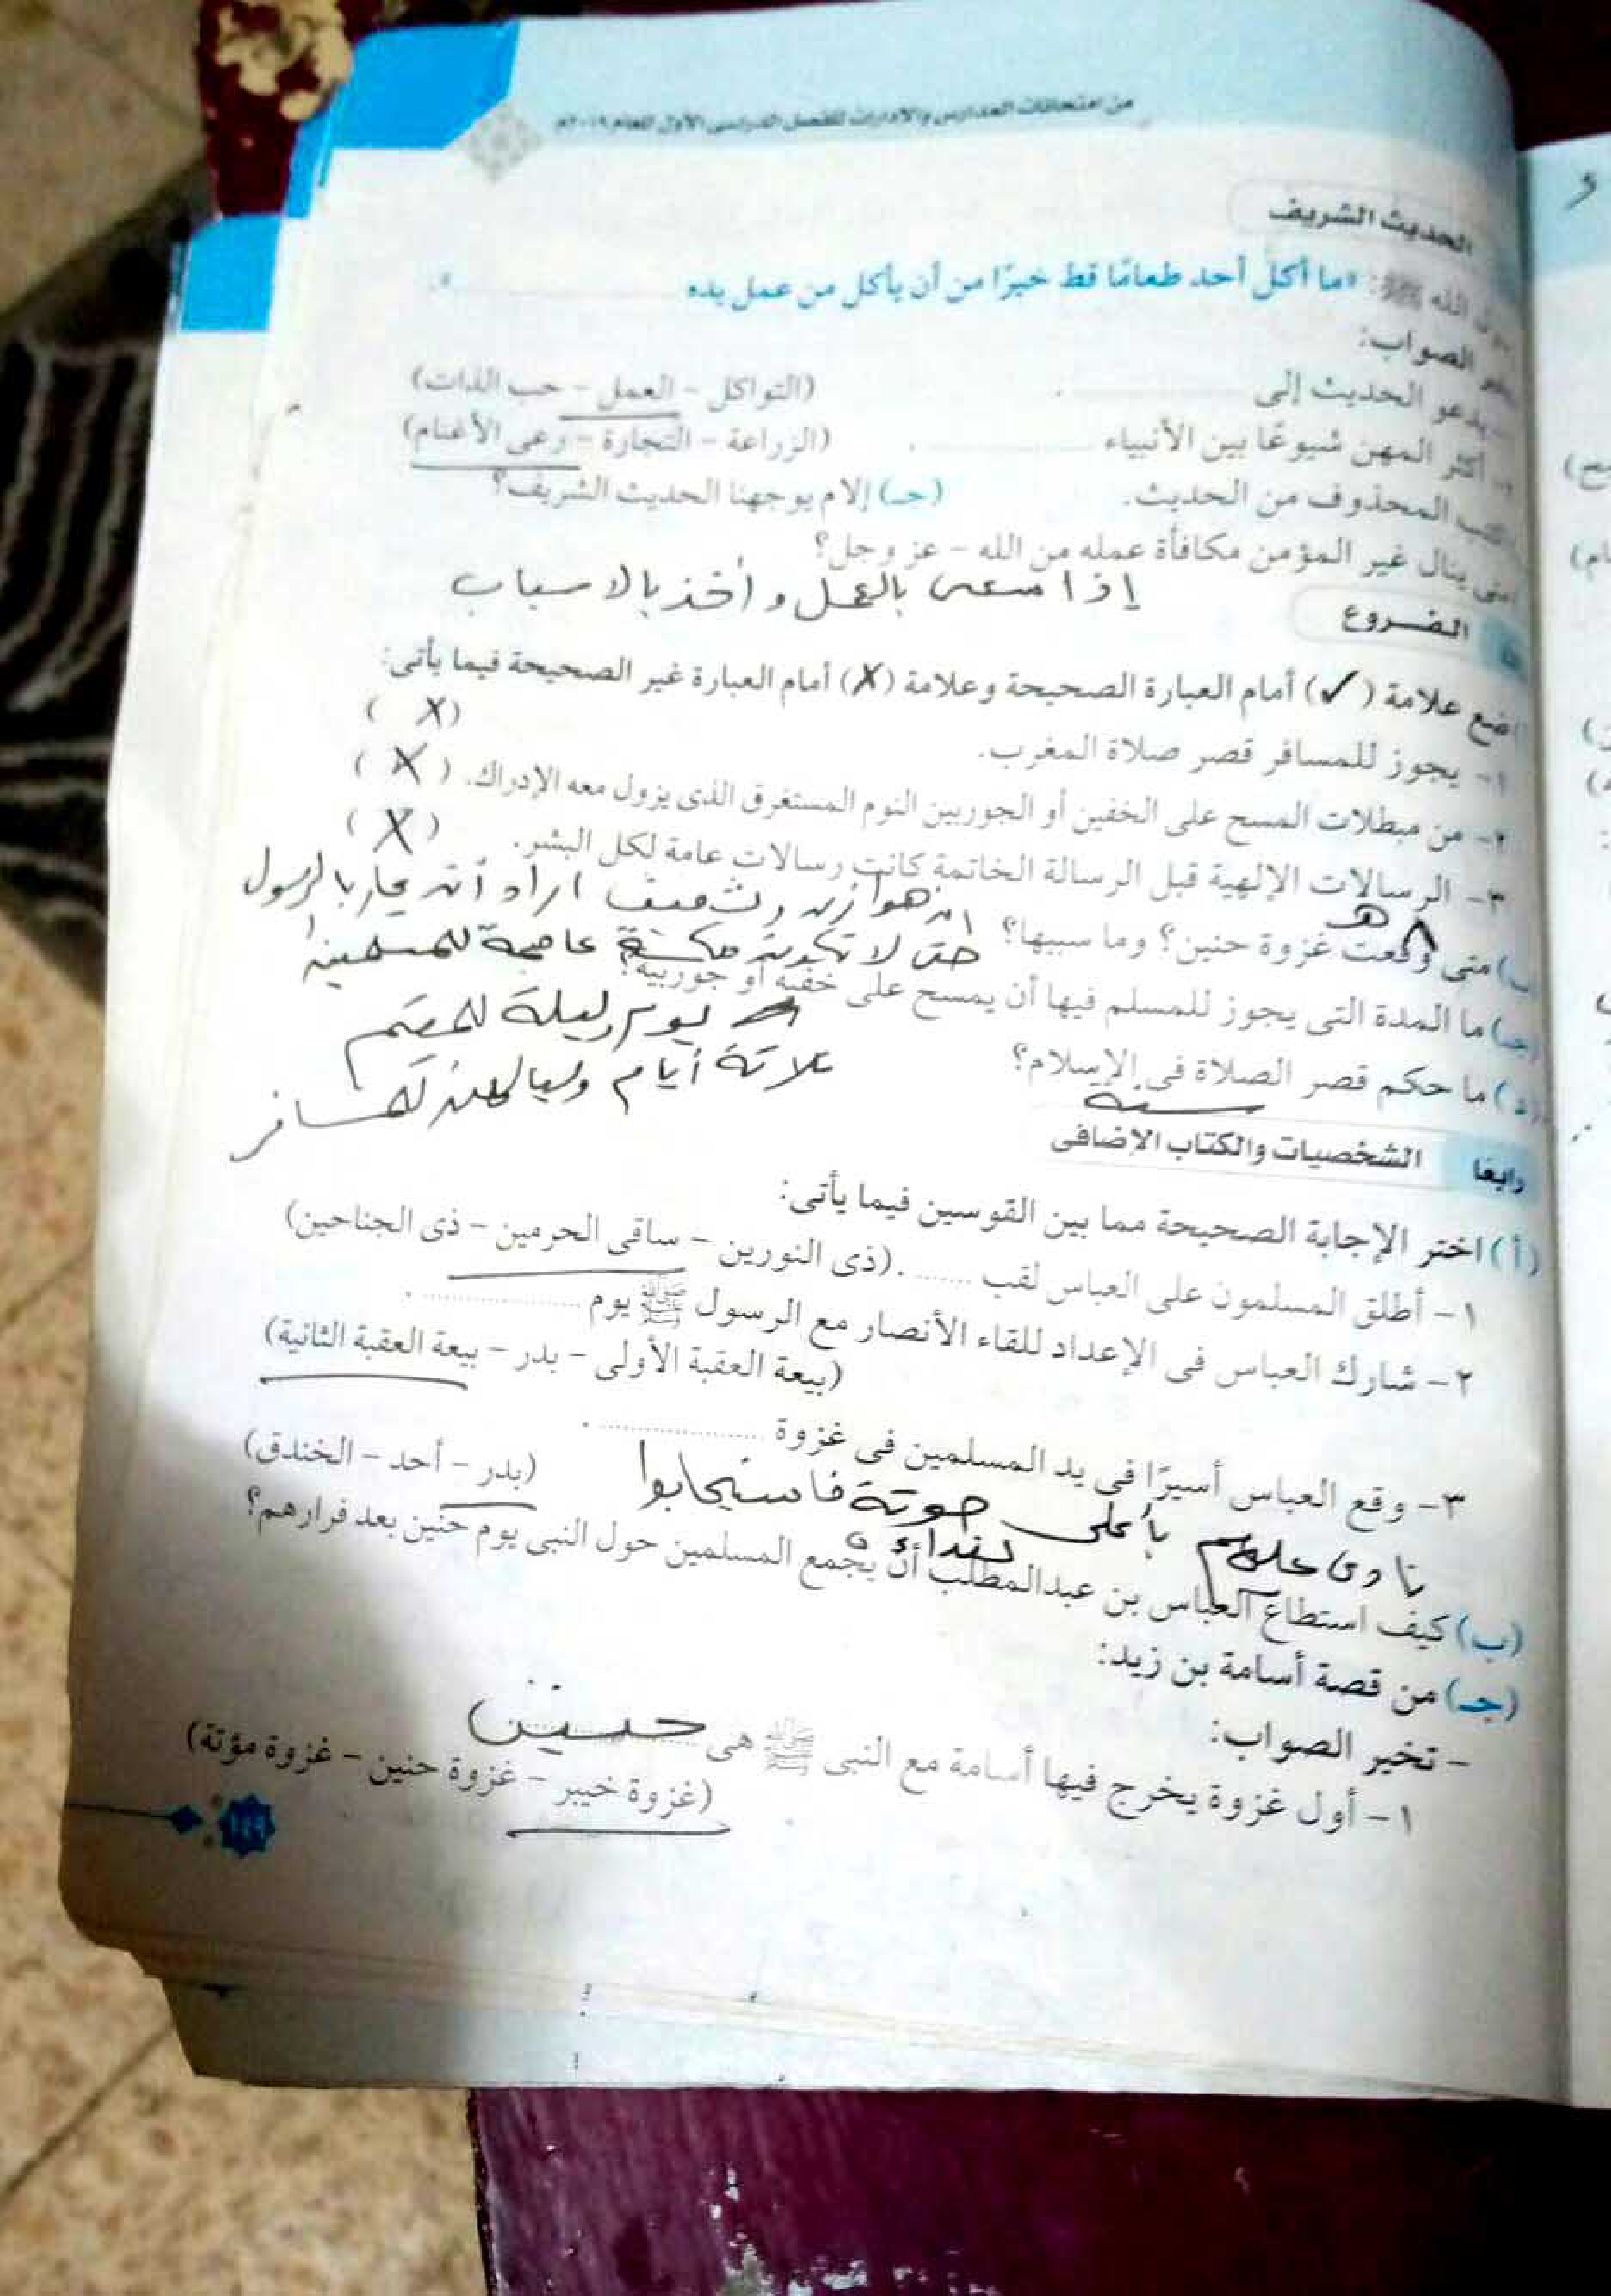 من امتحانات المدارس والإدارات للفصل الدراسى الأول للعام ٢٠١٩م
الحديث الشريف
الله ﷺ: «ما أكل أحد طعامًا قط خيرًا من أن يأكل من عمل يده ..........».
الصواب:
يدعو الحديث إلى .......... . (التواكل - العمل - حب الذات)
٢- أكثر المهن شيوعًا بين الأنبياء .......... . (الزراعة - التجارة - رعى الأغنام)
المحذوف من الحديث. (جـ) إلام يوجهنا الحديث الشريف؟
متى ينال غير المؤمن مكافأة عمله من الله - عز وجل؟
إذا سعى بالعمل وأخذ بالاسباب
الفروع
ضع علامة (✓) أمام العبارة الصحيحة وعلامة (X) أمام العبارة غير الصحيحة فيما يأتى:
١- يجوز للمسافر قصر صلاة المغرب. (X)
٢- من مبطلات المسح على الخفين أو الجوربين النوم المستغرق الذى يزول معه الإدراك. (X)
٣- الرسالات الإلهية قبل الرسالة الخاتمة كانت رسالات عامة لكل البشر. (X)
ان هوازن وثقيف اراد أن يحاربا الرسول
٨ هـ
ب) متى وقعت غزوة حنين؟ وما سببها؟
حتى لا تكون مكة عاصمة للمسلمين
جـ) ما المدة التى يجوز للمسلم فيها أن يمسح على خفيه أو جوربيه؟
يوم وليلة للمقيم
ثلاثة أيام ولياليهن للمسافر
(د) ما حكم قصر الصلاة فى الإسلام؟
سنة
رابعًا الشخصيات والكتاب الإضافى
(أ) اختر الإجابة الصحيحة مما بين القوسين فيما يأتى:
١- أطلق المسلمون على العباس لقب ....... . (ذى النورين - ساقى الحرمين - ذى الجناحين)
٢- شارك العباس فى الإعداد للقاء الأنصار مع الرسول ﷺ يوم .......... .
(بيعة العقبة الأولى - بدر - بيعة العقبة الثانية)
٣- وقع العباس أسيرًا فى يد المسلمين فى غزوة .......... .
(بدر - أحد - الخندق)
نادى عليهم بأعلى صوتة فاستجابوا
لنداءة
(ب) كيف استطاع العباس بن عبدالمطلب أن يجمع المسلمين حول النبى يوم حنين بعد فرارهم؟
(جـ) من قصة أسامة بن زيد:
- تخير الصواب:
١- أول غزوة يخرج فيها أسامة مع النبى ﷺ هى حنين
(غزوة خيبر - غزوة حنين - غزوة مؤتة)
١٤٩